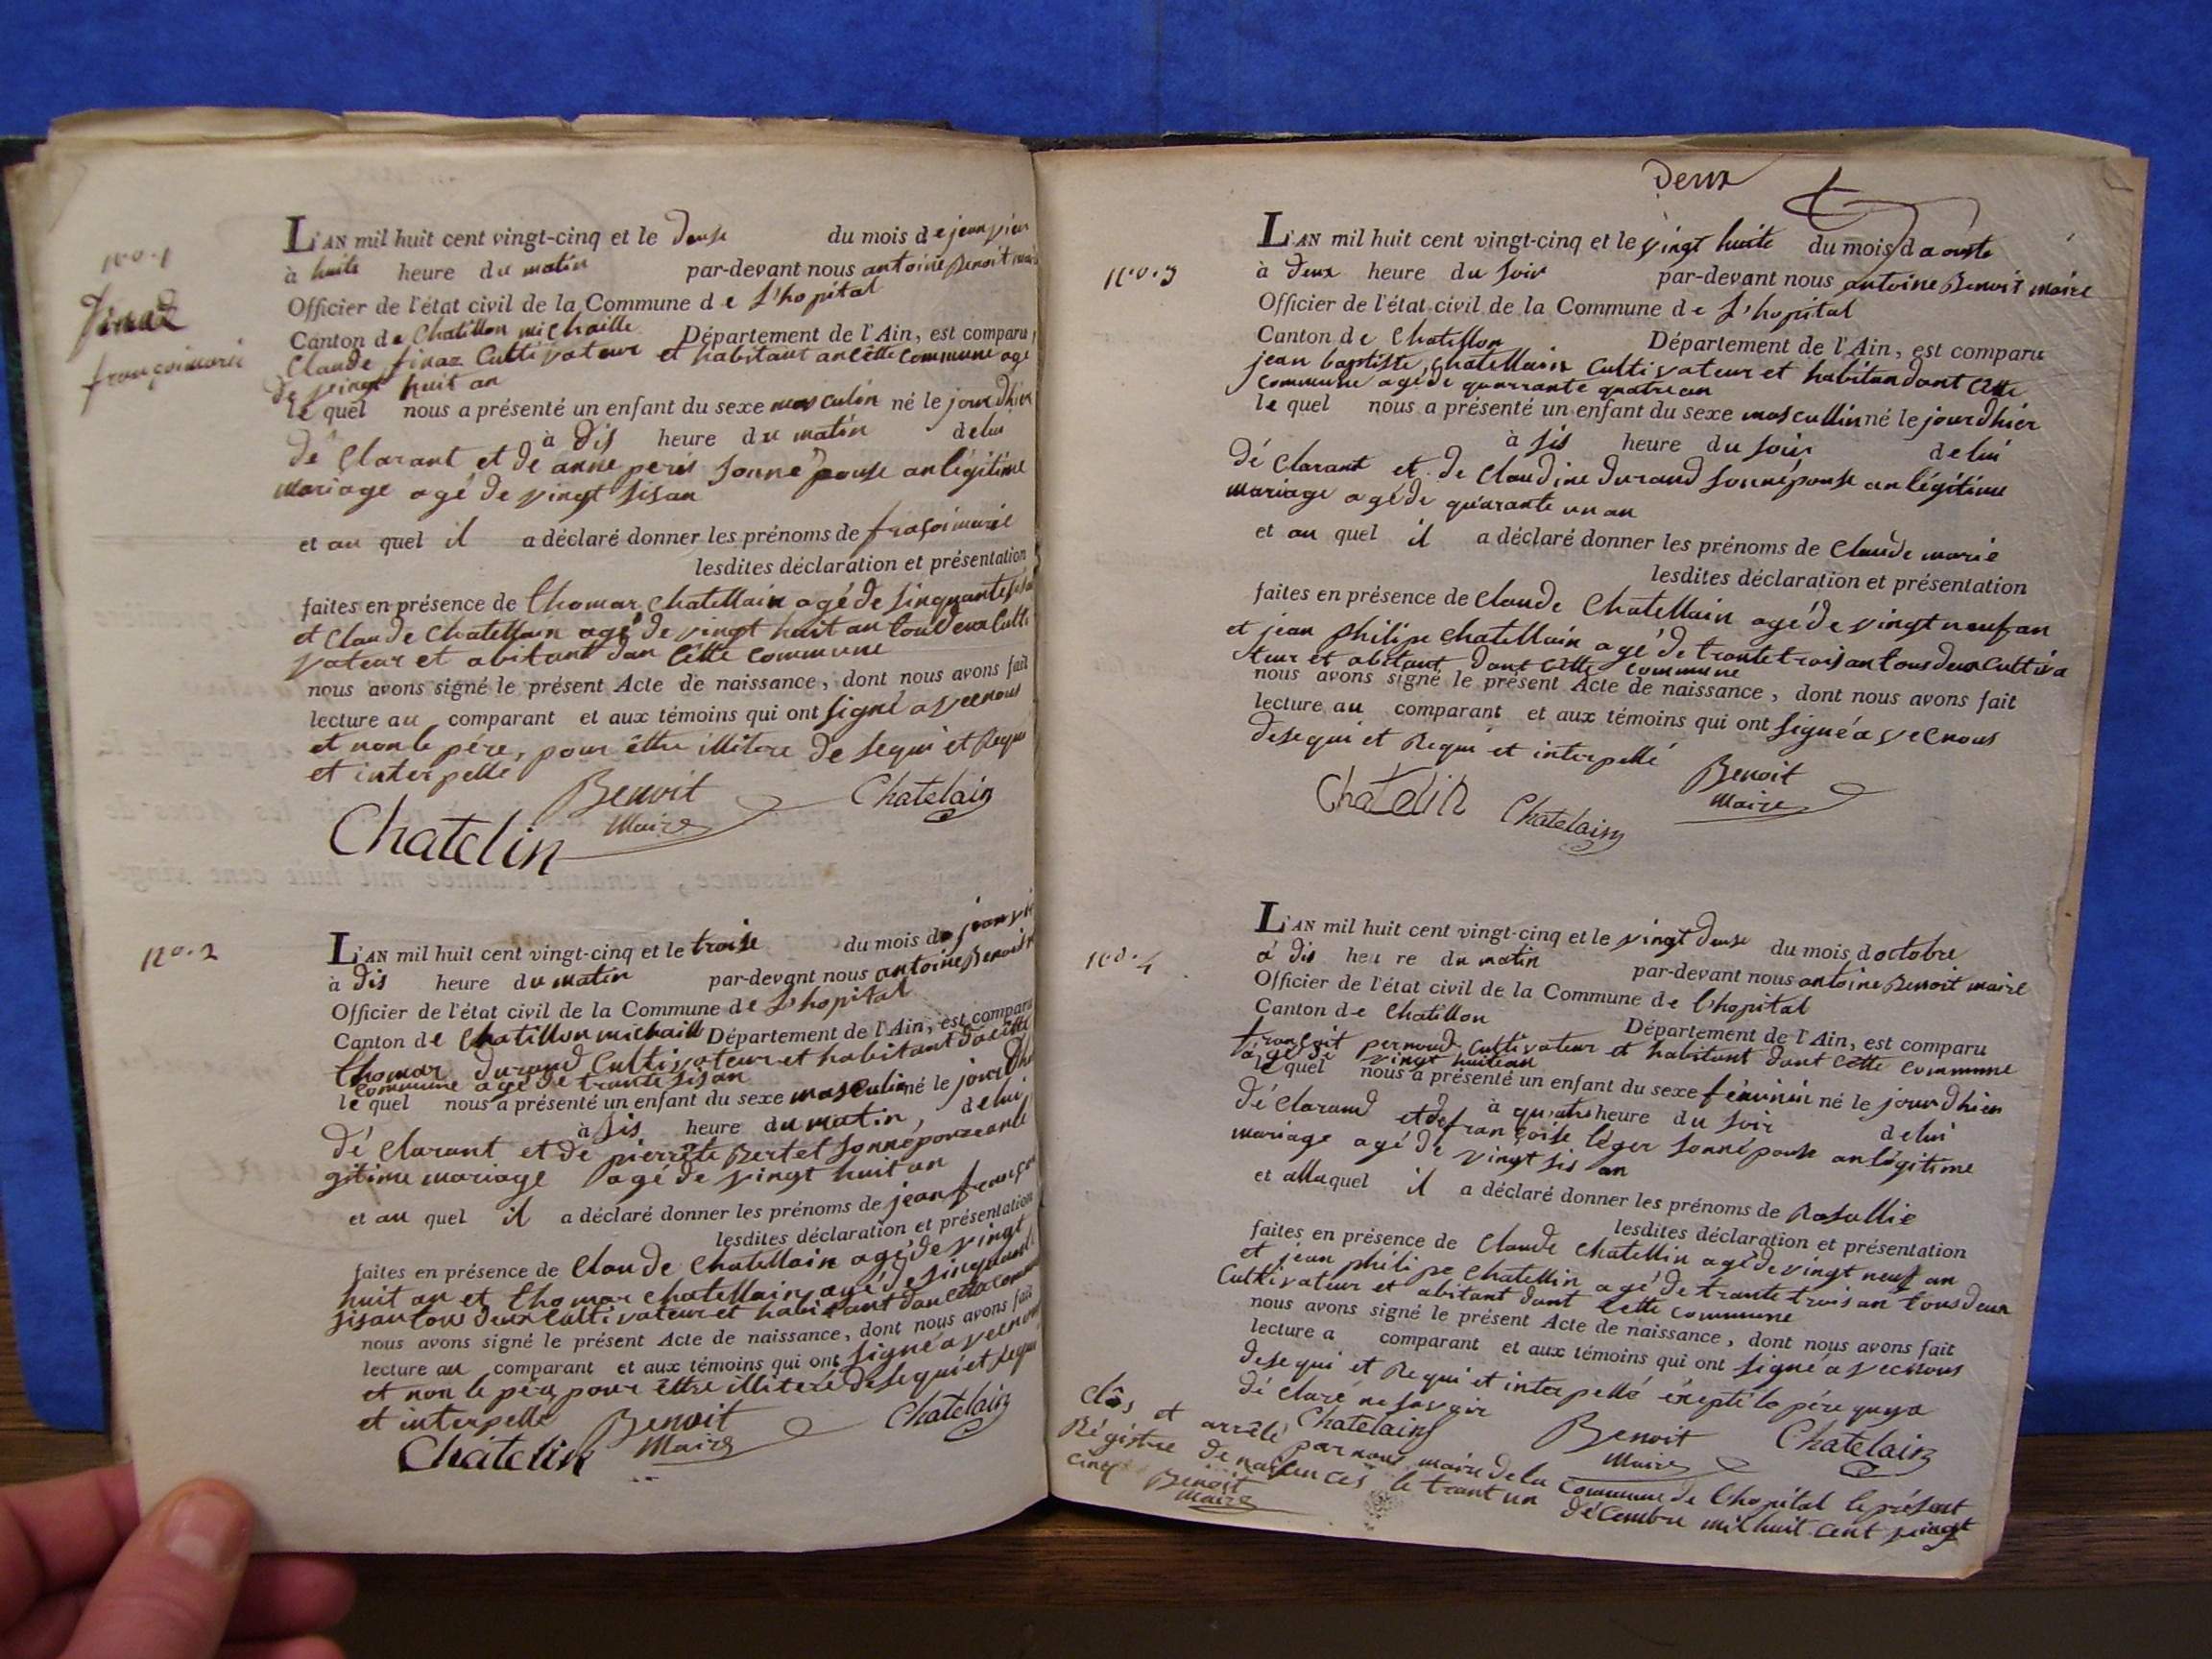 no. 1
finaz
françoimarie
L'AN mil huit cent vingt-cinq et le deuse du mois de jeanvier
à huite heure du matin par-devant nous antoine Benoit
Officier de l'état civil de la Commune de L'hopital
Canton de Chatillon michaille Département de l'Ain, est comparu
Claude finaz Cultivateur et habitant an cette commune agé
de vingt huit an
le quel nous a présenté un enfant du sexe masculin né le jour dhier
à dis heure du matin de lui
dé clarant et de anne peris sonné pouse an légitime
mariage agé de vingt sisan
et au quel il a déclaré donner les prénoms de fraçoimarie
lesdites déclaration et présentation
faites en présence de thomas chatellain agé de sinquante
et Claude Chatellain agé de vingt huit an tous deux Culti
vateur et abitant dan Cette commune
nous avons signé le présent Acte de naissance, dont nous avons fait
lecture au comparant et aux témoins qui ont signé avec nous
et non le pére, pour éttre illitere de sequi et Requi
et interpellé
Benoit Maire Chatelain
Chatelin
no. 2
L'AN mil huit cent vingt-cinq et le troise du mois de jeanvi
à dis heure du matin par-devant nous antoine Benoit
Officier de l'état civil de la Commune de L'hopital
Canton de Chatillon michaille Département de l'Ain, est comparu
thomas durand Cultivateur et habitant da cette
commune agé de trante sisan
le quel nous a présenté un enfant du sexe masculin né le jour dhi
à sis heure du matin, de lui
dé clarant et de pierrete Bertet sonné pouze anlé
gitime mariage agé de vingt huit an
et au quel il a déclaré donner les prénoms de jean françoi
lesdites déclaration et présentation
faites en présence de Claude Chatellain agé de vingt
huit an et thomas chatellain agé de sinquante
sisan tous deux Cultivateur et habitant dan cette commu
nous avons signé le présent Acte de naissance, dont nous avons fait
lecture au comparant et aux témoins qui ont signé avec nous
et non le pére pour éttre illiteré de sequi et Requi
et interpellé
Benoit Maire Chatelain
Chatelin
deux
no. 3
L'AN mil huit cent vingt-cinq et le vingt huite du mois d aouste
à deux heure du soir par-devant nous antoine Benoit maire
Officier de l'état civil de la Commune de L'hopital
Canton de Chatillon Département de l'Ain, est comparu
jean baptiste Chatellain Cultivateur et habitan dant Cette
commune agé de quarrante quatre an
le quel nous a présenté un enfant du sexe mascullin né le jour dhier
à sis heure du soir de lui
dé clarant et de Claudine durand sonné pouse an légitime
mariage agé de quarante un an
et au quel il a déclaré donner les prénoms de Claude marie
lesdites déclaration et présentation
faites en présence de Claude Chatellain agé de vingt neuf an
et jean philipe chatellain agé de trante trois an tous deux Cultiva
teur et abitant dant Cette commune
nous avons signé le présent Acte de naissance, dont nous avons fait
lecture au comparant et aux témoins qui ont signé avec nous
desequi et Requi et interpellé
Chatelin Chatelain Benoit Maire
no. 4
L'AN mil huit cent vingt-cinq et le vingt deuse du mois d octobre
à dis heure du matin par-devant nous antoine Benoit maire
Officier de l'état civil de la Commune de l'hopital
Canton de Chatillon Département de l'Ain, est comparu
françoit pernoud Cultivateur et habitant dant cette commune
agé de vingt huitean
le quel nous a présenté un enfant du sexe féminin né le jour dhier
à quatre heure du soir de lui
dé clarand et de françoise léger sonné pouse an légitime
mariage agé de vingt sis an
et allaquel il a déclaré donner les prénoms de Rosallie
lesdites déclaration et présentation
faites en présence de Claude Chatellin agé de vingt neuf an
et jean philipe Chatellin agé de trante trois an tous deux
Cultivateur et abitant dant Cette commune
nous avons signé le présent Acte de naissance, dont nous avons fait
lecture a comparant et aux témoins qui ont signé avec nous
desequi et Requi et interpellé éxepté le pére quya
dé claré ne savoir
Chatelain Benoit Maire Chatelain
Clôs et arrêté par nous maire de la Commune de l'hopital le présent
Régistre de naissences le trant un décembre mil huit cent vingt
cinq Benoit Maire